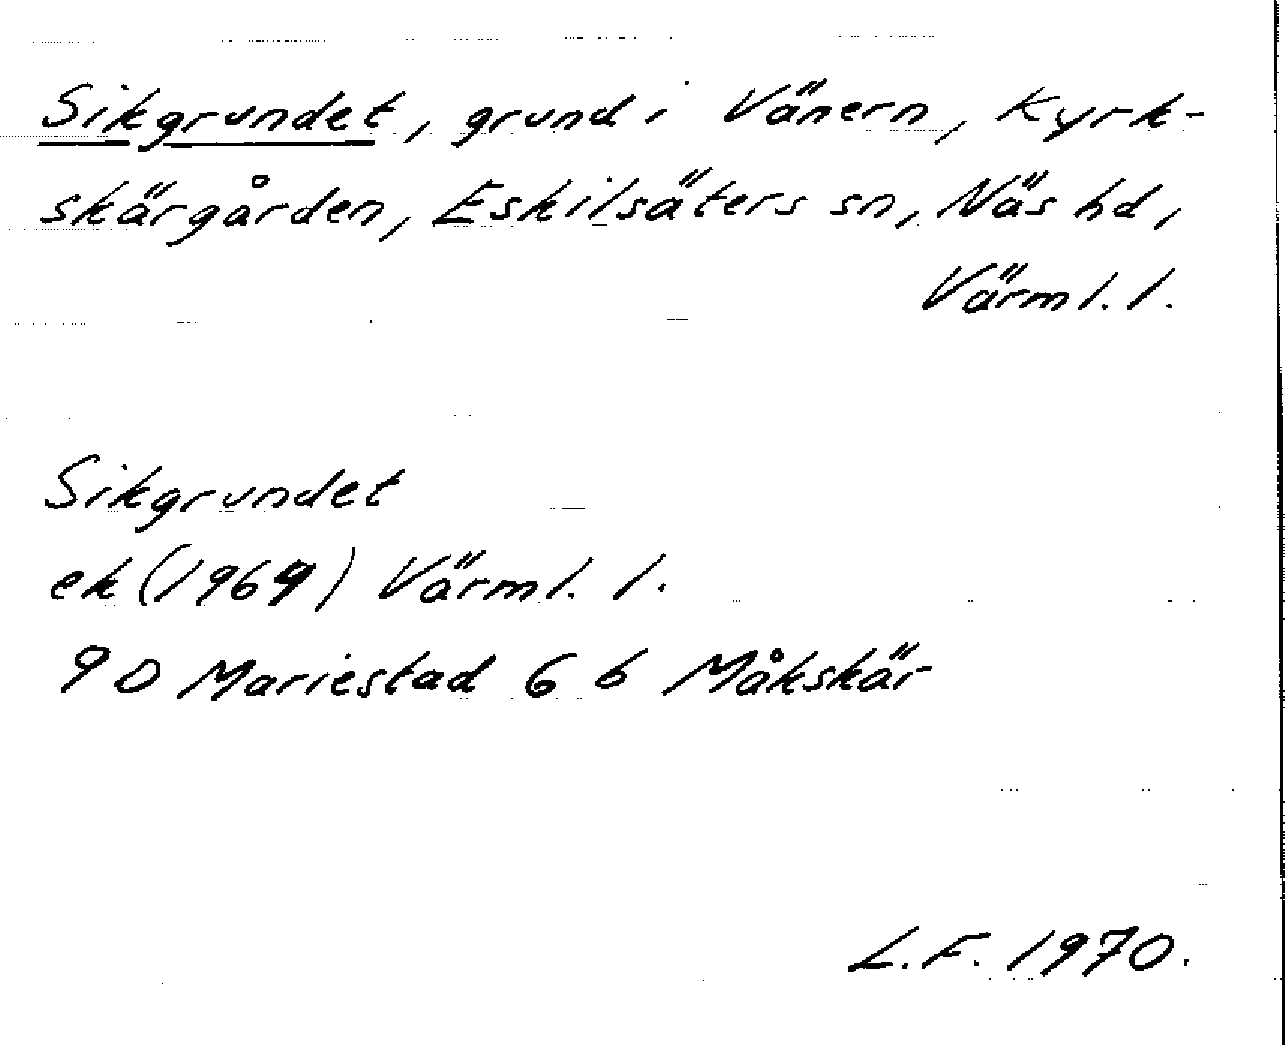 Sikgrundet, grund i Vänern, Kyrk-
skärgården, Eskilsäters sn, Näs hd,
Värml. l.
Sikgrundet
ek (1969) Värml. l.
9D Mariestad 6 b Måkskär
L.F. 1970.